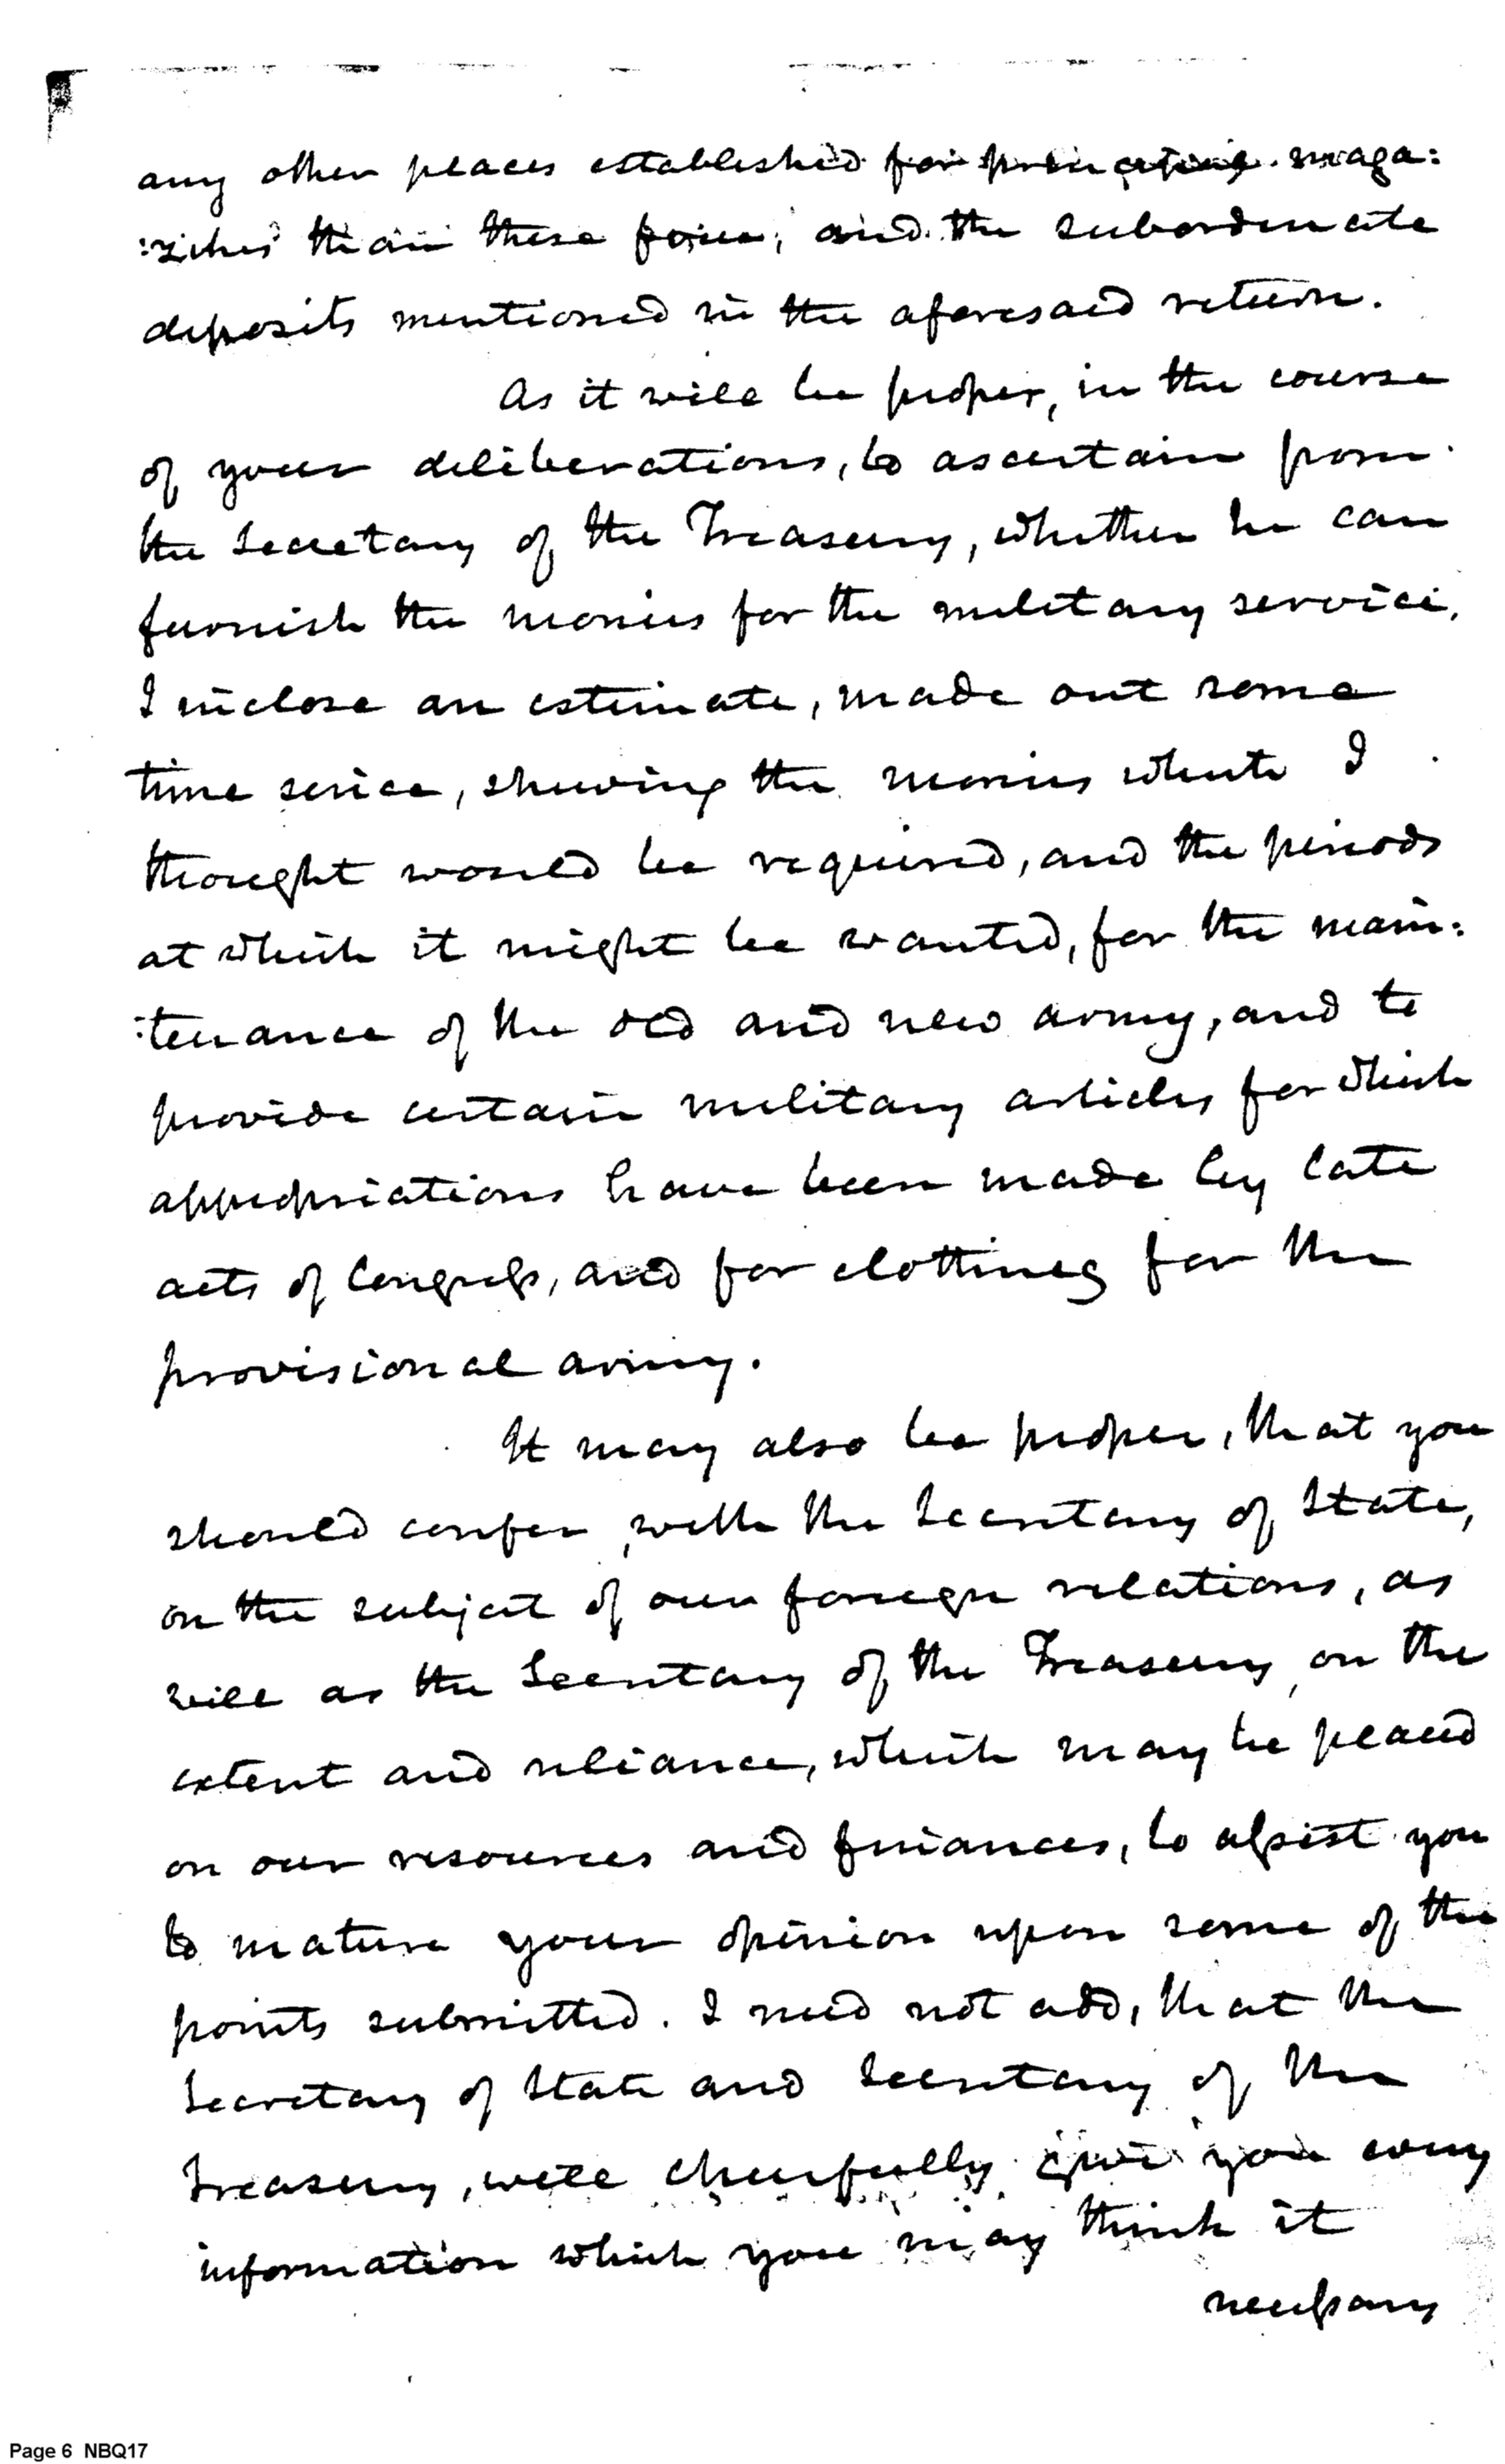 any other places established for principal maga:
:zines than these four; and the subordinate
deposits mentioned in the aforesaid return.
As it will be proper, in the course
of your deliberations, to ascertain from
the Secretary of the Treasury, whether he can
furnish the monies for the military service,
I inclose an estimate, made out some
time since, shewing the monies which I
thought would be required, and the periods
at which it might be wanted, for the main:
:tenance of the old and new army, and to
provide certain military articles for which
appropriations have been made by late
acts of Congress, and for clothing for the
provisional army.
It may also be proper, that you
should confer, with the Secretary of State,
on the subject of our foreign relations, as
well as the Secretary of the Treasury, on the
extent and reliance, which may be placed
on our resources and finances, to assist you
to mature your opinion upon some of the
points submitted. I need not add, that the
Secretary of State and Secretary of the
Treasury, will cheerfully give you every
information which you may think it
necessary
Page 6 NBQ17